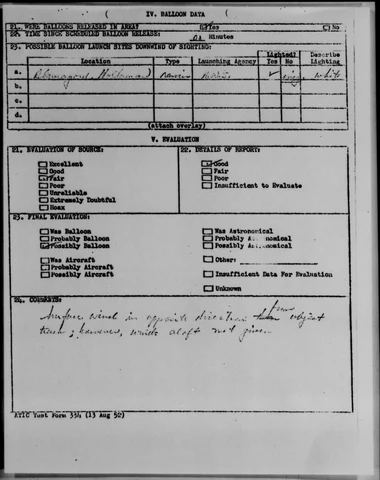 IV. BALLOON DATA
21. WERE BALLOONS RELEASED IN AREA? Yes No
22. TIME SINCE SCHEDULED BALLOON RELEASE: Minutes
23. POSSIBLE BALLOON LAUNCH SITES DOWNWIND OF SIGHTING:
Location Type Launching Agency Lighted? Yes No Describe Lighting
a. white
b.
c.
d.
(attach overlay)
V. EVALUATION
21. EVALUATION OF SOURCE: 22. DETAILS OF REPORT:
Excellent Good
Good Fair
Fair Poor
Poor Insufficient to Evaluate
Unreliable
Extremely Doubtful
Hoax
23. FINAL EVALUATION:
Was Balloon Was Astronomical
Probably Balloon Probably Astronomical
Possibly Balloon Possibly Astronomical
Was Aircraft Other:
Probably Aircraft
Possibly Aircraft Insufficient Data For Evaluation
Unknown
24. COMMENTS:
Surface wind in opposite direction from object
track; however, winds aloft not given.
ATIC Test Form 334 (13 Aug 52)